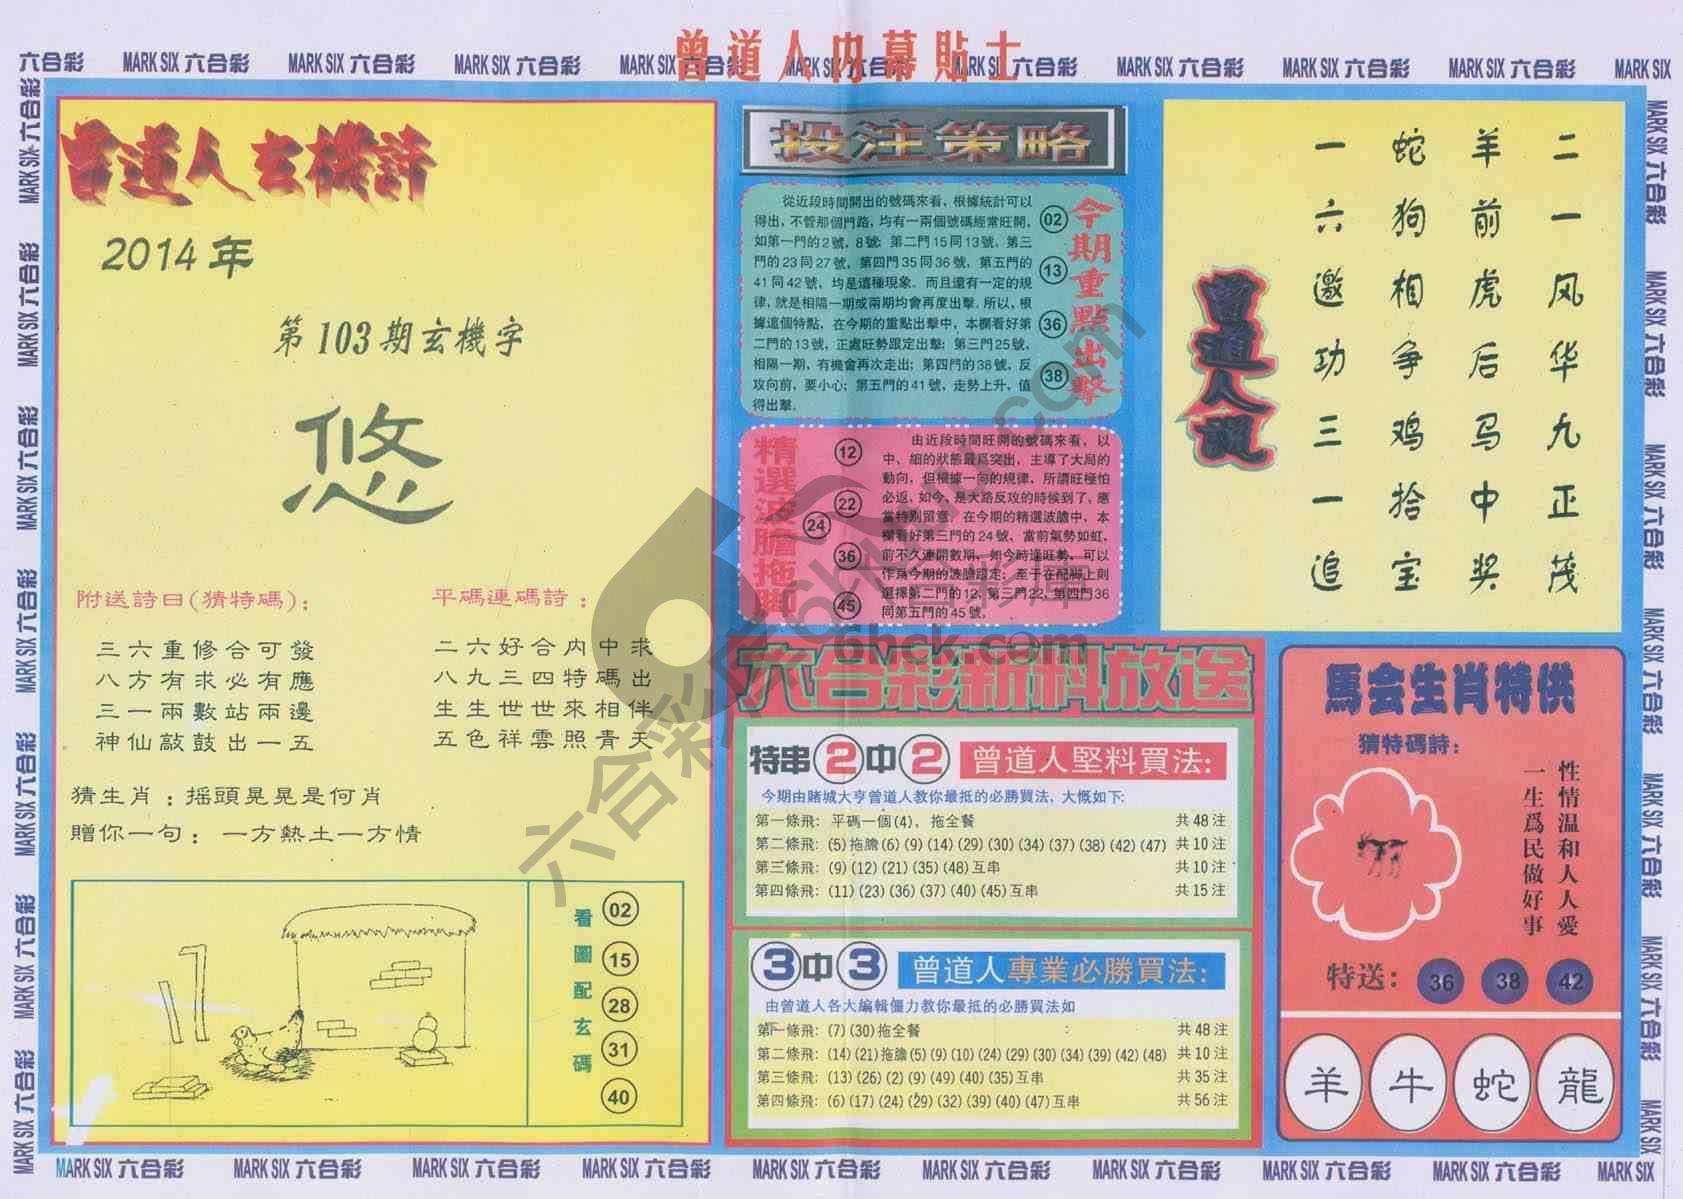 曾道人内幕貼士
六合彩 MARK SIX 六合彩 MARK SIX 六合彩 MARK SIX 六合彩 MARK SIX 六合彩 MARK SIX 六合彩 MARK SIX 六合彩 MARK SIX 六合彩 MARK SIX 六合彩 MARK SIX
曾道人玄機詩
2014年
第103期玄機字
悠
附送詩曰(猜特碼)：
三六重修合可發
八方有求必有應
三一兩數站兩邊
神仙敲鼓出一五
平碼連碼詩：
二六好合内中求
八九三四特碼出
生生世世來相伴
五色祥雲照青天
猜生肖：摇頭晃晃是何肖
贈你一句：一方熱土一方情
看圖配玄碼
02
15
28
31
40
投注策略
從近段時間開出的號碼來看，根據統計可以
得出，不管那個門路，均有一兩個號碼經常旺開，
如第一門的2號，8號；第二門15同13號，第三
門的23同27號，第四門35同36號，第五門的
41同42號，均是這種現象。而且還有一定的規
律，就是相隔一期或兩期均會再度出擊。所以，根
據這個特點，在今期的重點出擊中，本欄看好第
二門的13號，正處旺勢跟定出擊；第三門25號，
相隔一期，有機會再次走出；第四門的38號，反
攻向前，要小心；第五門的41號，走勢上升，值
得出擊。
今期重點出擊
02
13
36
38
精選波膽拖脚
12
22
24
36
45
由近段時間旺開的號碼來看，以
中、細的狀態最爲突出，主導了大局的
動向，但根據一向的規律，所謂旺極怕
必返，如今，是大路反攻的時候到了，應
當特别留意。在今期的精選波膽中，本
欄看好第三門的24號，當前氣勢如虹，
前不久連開數期，如今時逢旺勢，可以
作爲今期的波膽跟定；至于在配脚上則
選擇第二門的12、第三門22、第四門36
同第五門的45號，
六合彩新料放送
特串2中2 曾道人堅料買法：
今期由賭城大亨曾道人教你最抵的必勝買法，大慨如下：
第一條飛：平碼一個(4)，拖全餐 共48注
第二條飛：(5)拖膽(6)(9)(14)(29)(30)(34)(37)(38)(42)(47) 共10注
第三條飛：(9)(12)(21)(35)(48)互串 共10注
第四條飛：(11)(23)(36)(37)(40)(45)互串 共15注
3中3 曾道人專業必勝買法：
由曾道人各大編輯僵力教你最抵的必勝買法如
第一條飛：(7)(30)拖全餐 共48注
第二條飛：(14)(21)拖膽(5)(9)(10)(24)(29)(30)(34)(39)(42)(48) 共10注
第三條飛：(13)(26)(2)(9)(49)(40)(35)互串 共35注
第四條飛：(6)(17)(24)(29)(32)(39)(40)(47)互串 共56注
曾道人說
二一风华九正茂
羊前虎后马中奖
蛇狗相争鸡拾宝
一六邀功三一追
馬会生肖特供
猜特碼詩：
性情温和人人愛
一生爲民做好事
特送：36 38 42
羊 牛 蛇 龍
六合彩库
6hck.com
MARK SIX 六合彩 MARK SIX 六合彩 MARK SIX 六合彩 MARK SIX 六合彩 MARK SIX 六合彩 MARK SIX 六合彩 MARK SIX 六合彩 MARK SIX 六合彩 MARK SIX 六合彩 MARK SIX